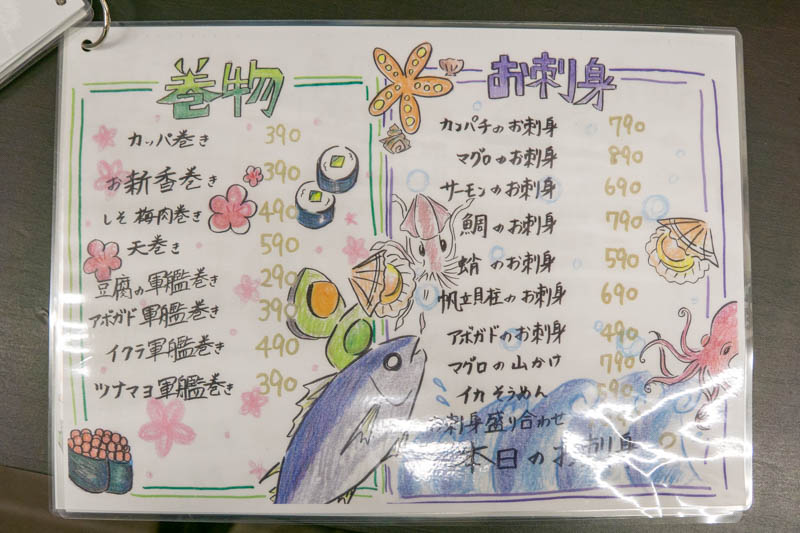 巻物
カッパ巻き 390
お新香巻き 390
しそ梅肉巻き 490
天巻き 590
豆腐の軍艦巻き 290
アボガド軍艦巻き 390
イクラ軍艦巻き 490
ツナマヨ軍艦巻き 390
お刺身
カンパチのお刺身 790
マグロのお刺身 890
サーモンのお刺身 690
鯛のお刺身 790
蛸のお刺身 590
帆立貝柱のお刺身 690
アボガドのお刺身 490
マグロの山かけ 790
イカそうめん 590
お刺身盛り合わせ
本日のお刺身